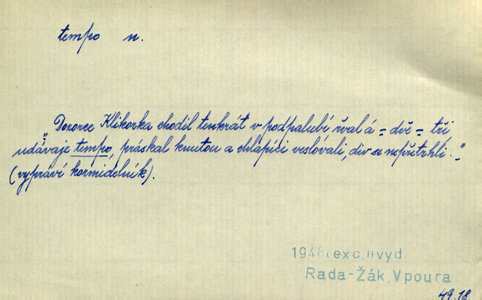 tempo n.
„Dozorce Klikorka chodil tenkrát v podpalubí řval á - dvě - tři,
udávaje tempo, práskal knutou a chlapíci veslovali, div se nepřetrhli."
(vypráví kormidelník).
1946 exc. II vyd
Rada-Žák, Vpoura
49.18